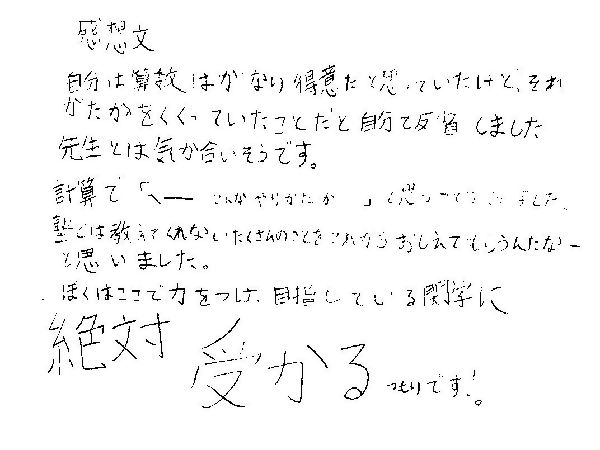 感想文
自分は算数はかなり得意だと思っていたけど、それ
がたかをくくっていたことだと自分で反省しました
先生とは気が合いそうです。
計算で「へー こんなやりかたが 」と思って ました。
塾では教えてくれないたくさんのことをこれからおしえてもらうんだなー
と思いました。
ぼくはここで力をつけ、目指している関学に
絶対 受かる つもりです!。